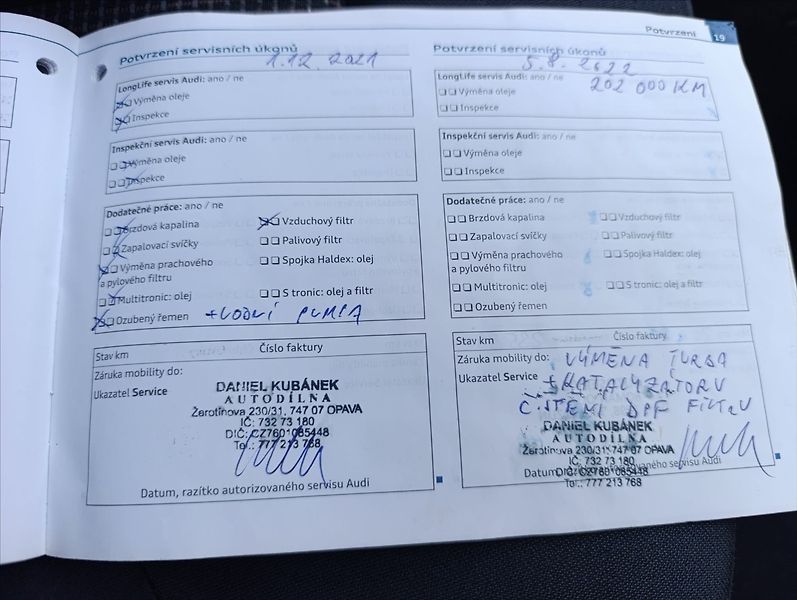 Potvrzení 19
Potvrzení servisních úkonů
1.12. 2021
LongLife servis Audi: ano / ne
Výměna oleje
Inspekce
Inspekční servis Audi: ano / ne
Výměna oleje
Inspekce
Dodatečné práce: ano / ne
Brzdová kapalina
Vzduchový filtr
Zapalovací svíčky
Palivový filtr
Výměna prachového
a pylového filtru
Spojka Haldex: olej
Multitronic: olej
S tronic: olej a filtr
Ozubený řemen
+VODNÍ PUMPA
Stav km
Číslo faktury
Záruka mobility do:
Ukazatel Service
DANIEL KUBÁNEK
AUTODÍLNA
Žerotínova 230/31, 747 07 OPAVA
IČ: 732 73 180
DIČ: CZ7601085448
Tel.: 777 213 768
Datum, razítko autorizovaného servisu Audi
Potvrzení servisních úkonů
5.8. 2022
LongLife servis Audi: ano / ne
202 000 KM
Výměna oleje
Inspekce
Inspekční servis Audi: ano / ne
Výměna oleje
Inspekce
Dodatečné práce: ano / ne
Brzdová kapalina
Vzduchový filtr
Zapalovací svíčky
Palivový filtr
Výměna prachového
a pylového filtru
Spojka Haldex: olej
Multitronic: olej
S tronic: olej a filtr
Ozubený řemen
Stav km
Číslo faktury
Záruka mobility do: VÝMĚNA TURBA
Ukazatel Service +KATALYZÁTORU
ČIŠTĚNÍ DPF FILTRU
DANIEL KUBÁNEK
AUTODÍLNA
Žerotínova 230/31, 747 07 OPAVA
IČ: 732 73 180
DIČ: CZ7601085448
Tel.: 777 213 768
Datum, autorizovaného servisu Audi